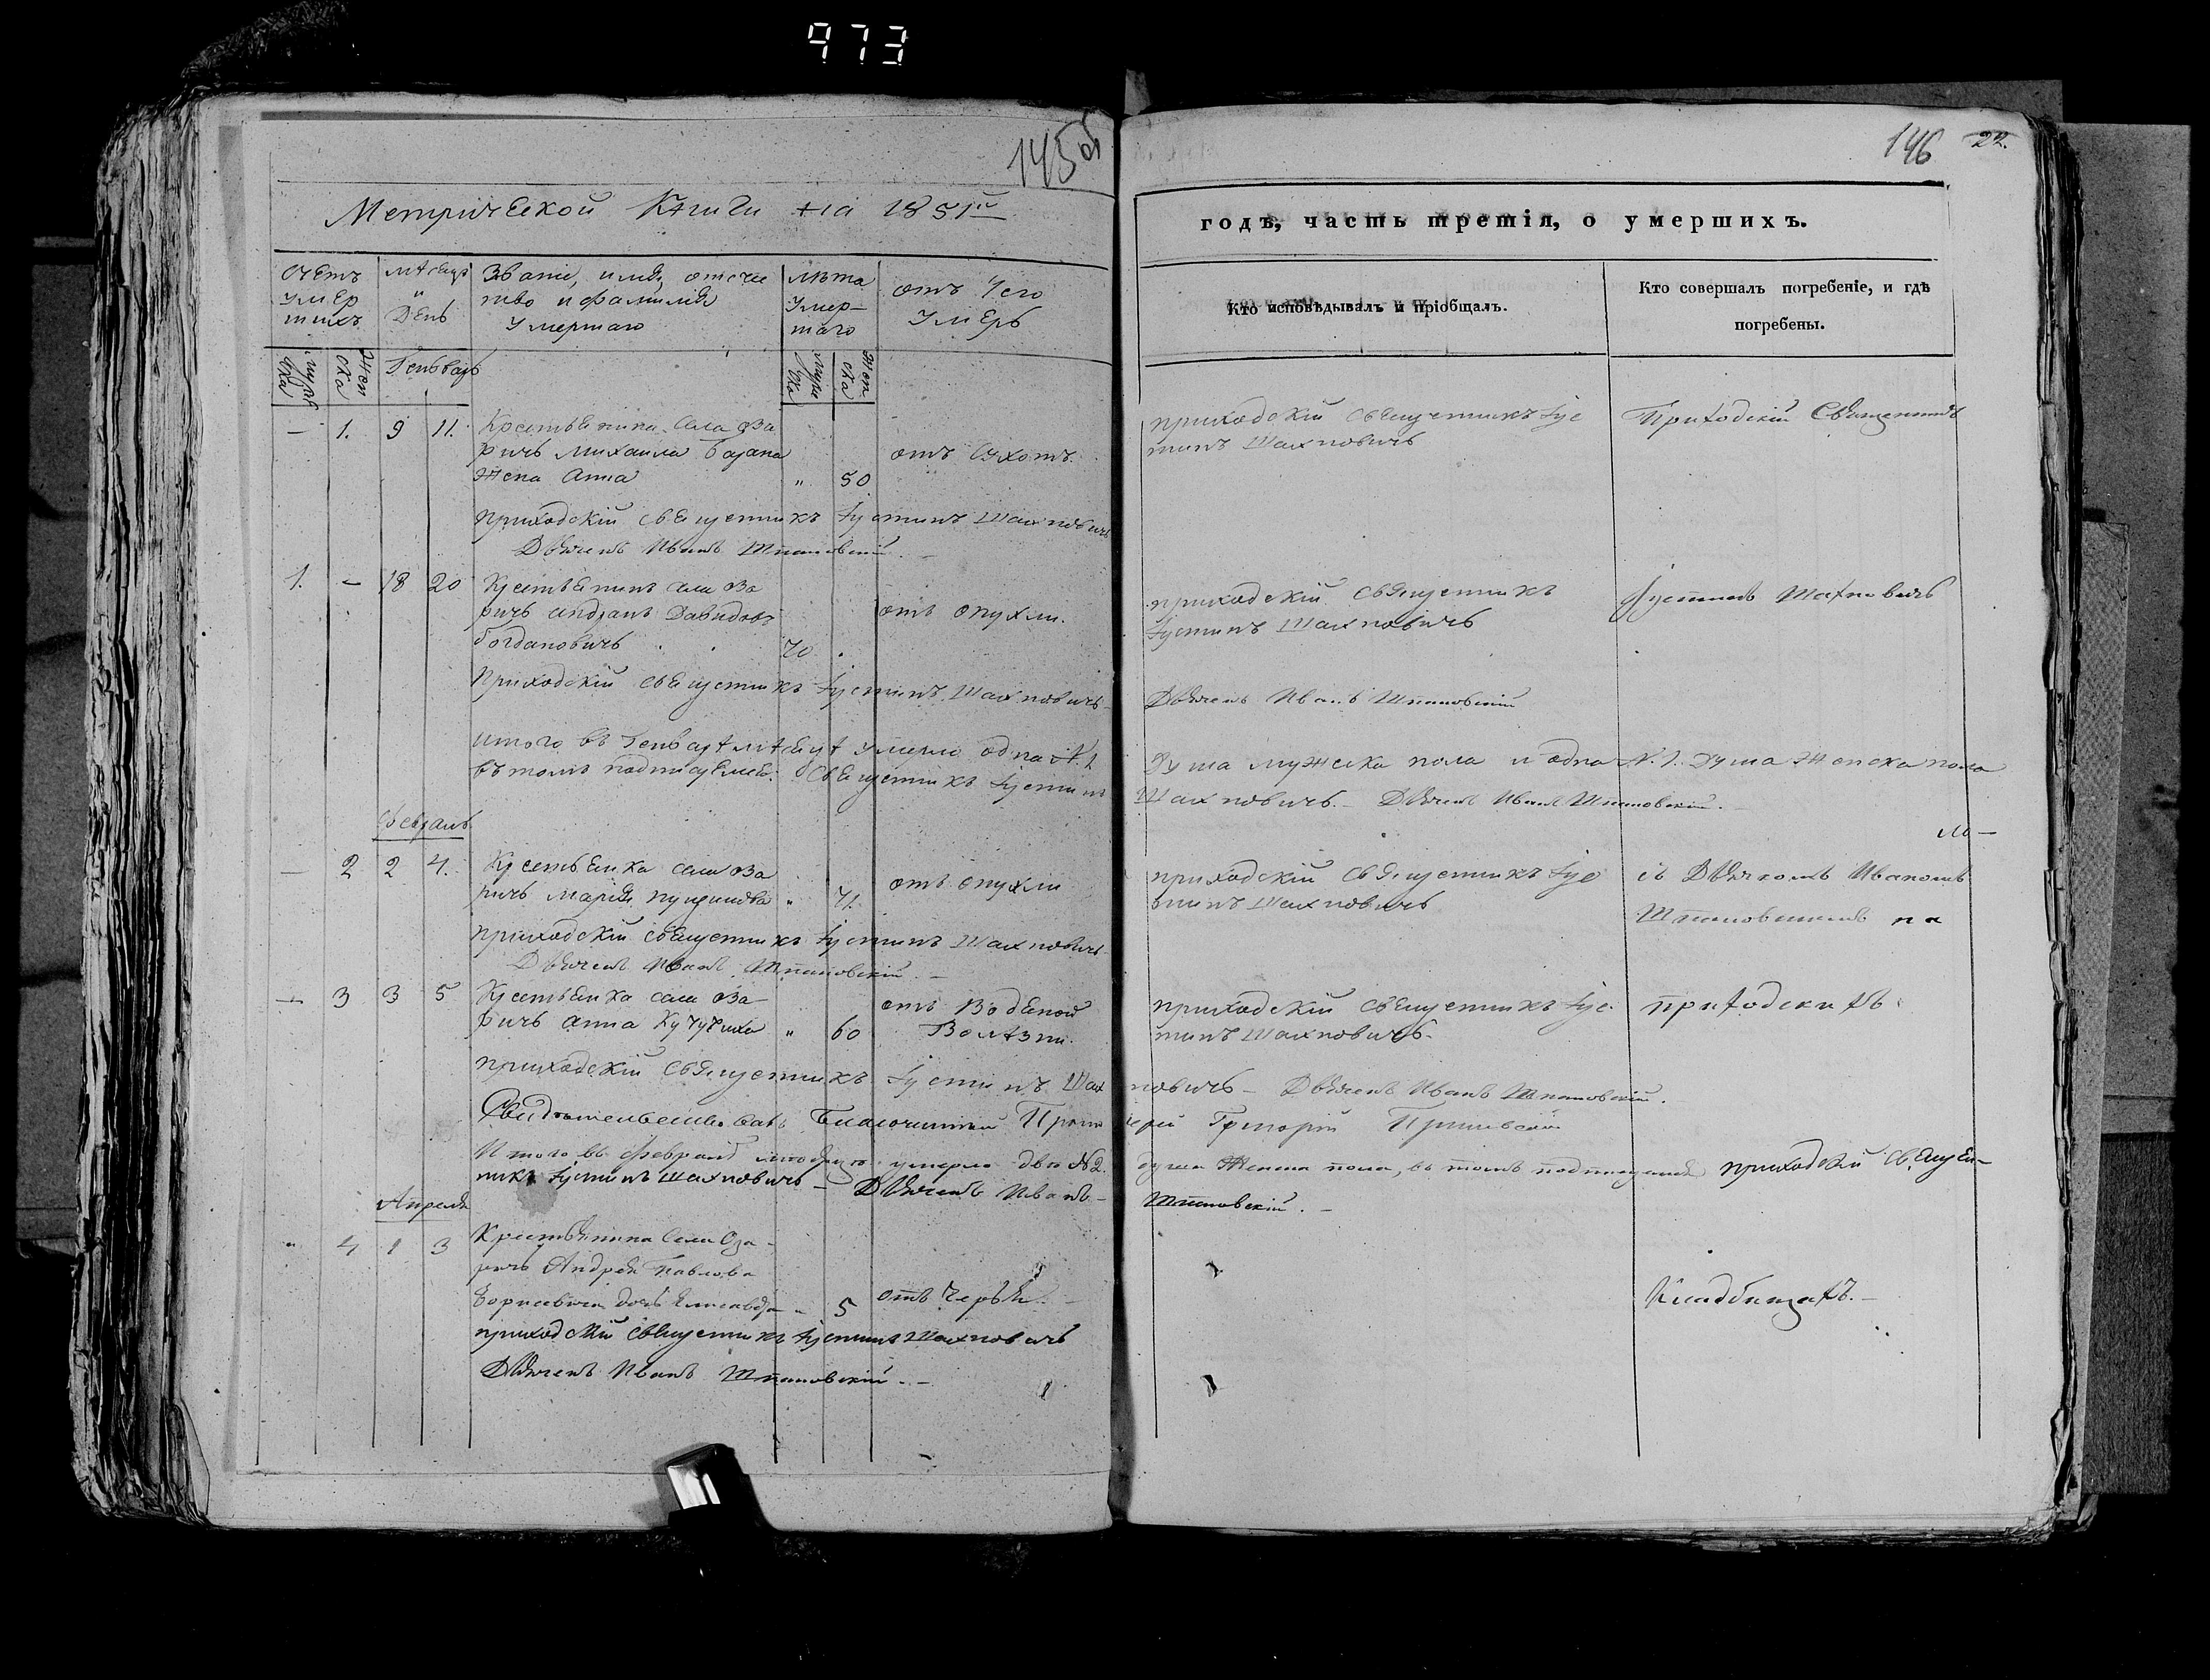 973
145 об
Метрической Книги на 1851й
счетъ умер шихъ
мѣсецъ и День
Званіе, имя, отече
тво и фамилія
Умершаго
лѣта Умер-шаго
отъ Чего Умеръ
мужеска
женска
Генварь
мужеска
женска
— 1. 9 11. Крестьянина села Оза
ричъ Михаила
жена Анна " 50 отъ Сухотъ.
приходскій священникъ Іустинъ Шахновичъ
Дьячекъ Иванъ Шпановскій. —
1. — 18 20 Крестьянинъ села Оза
ричъ андрей Давидовъ отъ опухли.
богдановичъ 70 .
Приходскій священникъ Іустинъ Шахновичъ
итого въ Генварѣ мѣсяцѣ умерло одна №1
въ томъ подписуемся: Священникъ Іустинъ
Февраль
— 2 2 4. Крестьянка села Оза
ричъ Марія " 71. отъ опухли
приходскій священникъ Іустинъ Шахновичъ
Дьячекъ Иванъ Шпановскій. —
— 3 3 5 Крестьянка села Оза отъ Водяной
ричъ анна " 60 Болѣзни.
приходскій священникъ Іустинъ Шах
Свидѣтельствовалъ Благочинный Прото
Итого въ февралѣ мѣсяцѣ умерло двѣ №2.
никъ Іустинъ Шахновичъ — Дьячекъ Иванъ —
Апреля
" 4 1 3 Крестьянина Села Оза-
ричъ Андрея Павлова
дочь Елисавета " 5 отъ Червей. —
приходскій священникъ Іустинъ Шахновичъ
Дьячекъ Иванъ Шпановскій. —
146 22.
годъ, часть третія, о умершихъ.
Кто исповѣдывалъ и пріобщалъ.
Кто совершалъ погребеніе, и гдѣ
погребены.
приходскій священникъ Іус Приходскій Священникъ
тинъ Шахновичъ
приходскій священникъ Іустинъ Шахновичъ
Іустинъ Шахновичъ
Дьячекъ Иванъ Шпановскій
душа мужеска пола и одна №1. душа женска пола
Шахновичъ. — Дьячекъ Иванъ Шпановскій.
приходскій священникъ Іус съ Дьячкомъ Иваномъ
тинъ Шахновичъ Шпановскимъ на
приходскій священникъ Іус- приходскихъ
тинъ Шахновичъ.
новичъ — Дьячекъ Иванъ Шпановскій.
іерей Григорій
душа женска пола, въ томъ подписуемся приходскій священ-
Шпановскій. —
Кладбищахъ. —